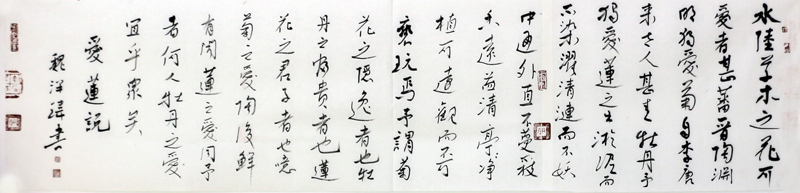 水陸草木之花可
愛者甚蕃晉陶淵
明獨愛菊自李唐
来世人甚愛牡丹予
獨愛蓮之出淤泥而
不染濯清漣而不妖
中通外直不蔓枝
香遠益清亭亭净
植可遠觀而不可
褻玩焉予謂菊
花之隱逸者也牡
丹之富貴者也蓮
花之君子者也噫
菊之愛陶後鮮
有聞蓮之愛同予
者何人牡丹之愛
宜乎眾矣
愛蓮説
魏洋 書